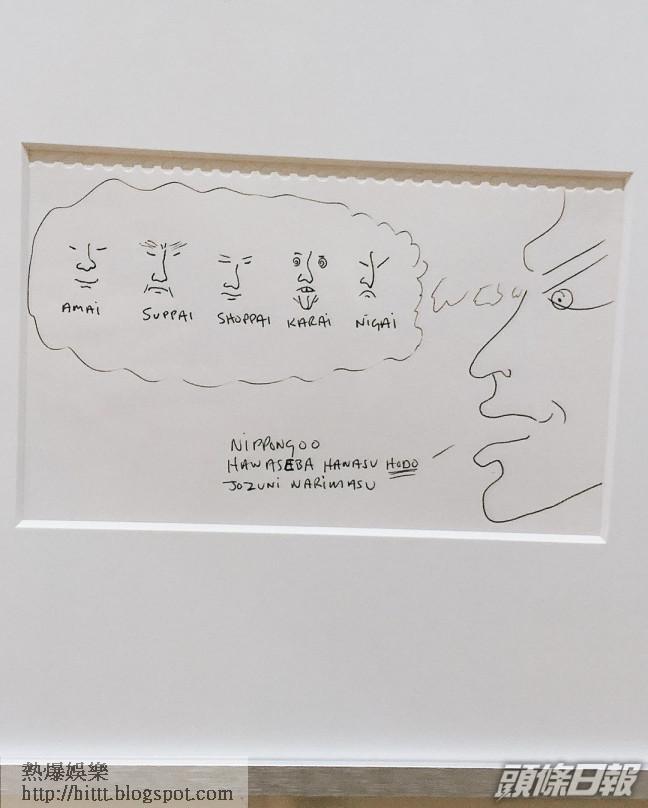 AMAi
SUPPAI
SHOPPAI
KARAI
NiGAi
NiPPONGOO
HAWASEBA HANASU HODO
JOZUNi NARIMASU
熱爆娛樂
http://hittt.blogspot.com
頭條日報